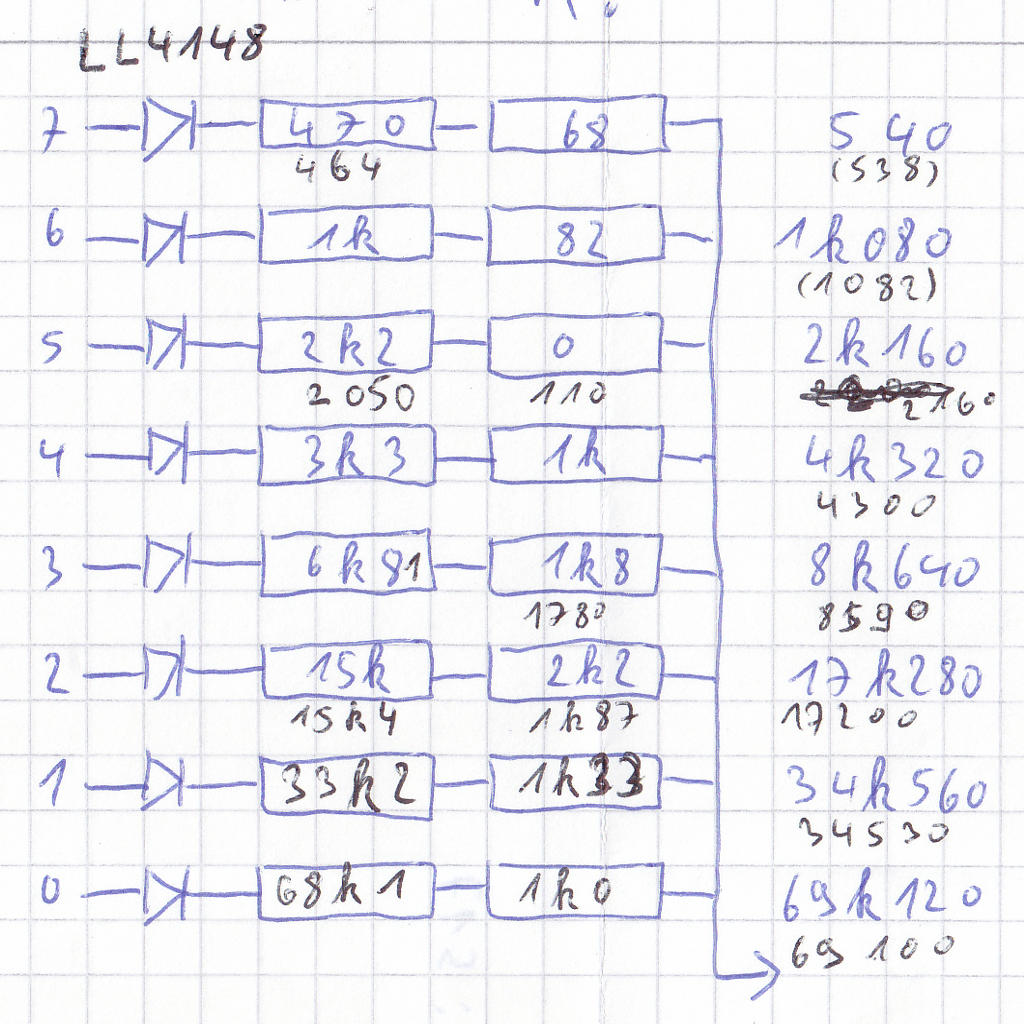 LL4148
7 470 68 540
464 (538)
6 1k 82 1k080
(1082)
5 2k2 0 2k160
2050 110 2160
4 3k3 1k 4k320
4300
3 6k81 1k8 8k640
1780 8590
2 15k 2k2 17k280
15k4 1k87 17200
1 33k2 1k33 34k560
34530
0 68k1 1k0 69k120
69100